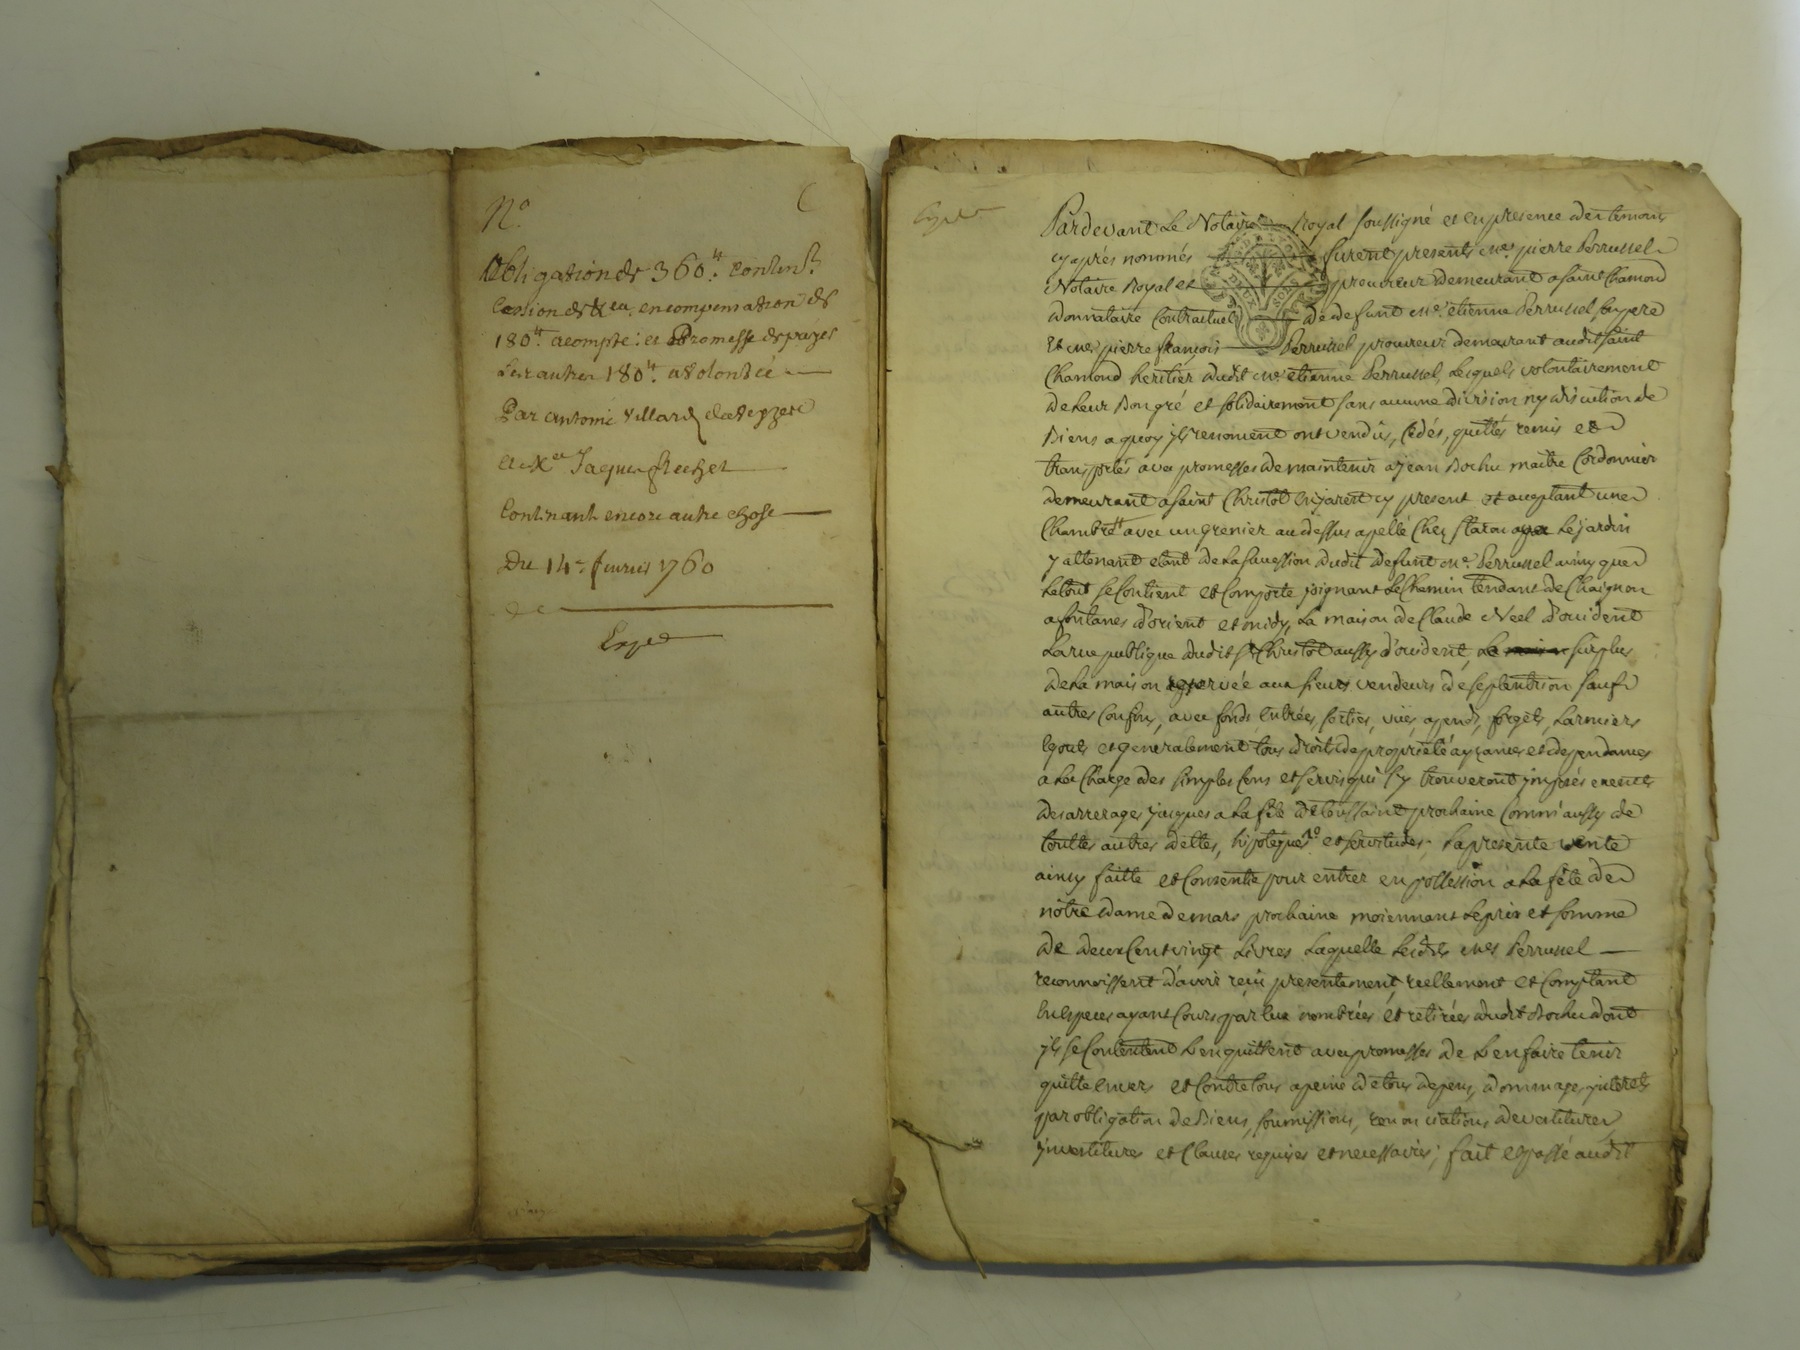 N.o
Obligation de 360.tt content.
Cession de en compensation de
180.tt acompte: et Promesse de payer
Les autres 180.tt a volonté
Par antoine Villard
Jaques
Contenant encore autre chose
Du 14.e fevrier 1760
Expéd
Expéd
Pardevant Le Notaire Royal soussigné et en presence des temoins
cy après nommés furent presents me. pierre Perrussel
Notaire Royal et procureur demeurant a saint Chamond
donnataire Contractuel de defunt me. etienne Perrussel son pere
Et me. pierre françois Perrussel procureur demeurant audit saint
Chamond heritier dudit me. etienne Perrussel, Lesquels volontairement
de Leur Bon gré et solidairement sans aucune division ny discution de
Biens a quoy ils renoncent ont vendus, Cédés, quittés remis et
transportés avec promesses de maintenir a jean Bochu maitre Cordonnier
demeurant a saint Christôt en jarest cy present et aceptant une
Chambre avec un grenier au dessus apellé Chez Staron Le jardin
y attenant etant de La succession dudit defunt me. Perrussel ainsy que
Le tout se Contient et Comporte joignant Le Chemin tendant de Chaignon
a fontanes d'orient et midy, La maison de Claude Neel d'occident
La rue publique dudit st. Christôt aussy d'occident, Le surplus
de La maison reservée aux sieurs vendeurs de septentrion sauf
autres Confins, avec fonds, Entrées, sorties, vües, apends, forgets, Larmiers
Egouts et generalement tous droits de proprieté aysances et dependances
a La Charge des simples Cens et servis qui s'y trouveront imposés exempts
des arrerages jusques a La fête de toussaint prochaine Comm'aussy de
touttes autres dettes, hipoteques et servitudes; La presente vente
ainsy faitte et Consentie pour entrer en possession a La fête de
nôtre dame de mars prochaine moiennant Le prix et somme
de deux Cent vingt Livres Laquelle Lesdits mes Perrussel
reconnoissent d'avoir reçu presentement, reellement et Comptant
En Especes ayant Cours par Eux nombrées et retirées dudit Bochu dont
ils se Contentent L'en quittent avec promesses de L'en faire tenir
quitte Envers et Contre tous a peine de tous depens, dommages, interets
par obligation de Biens, soumissions, renonciations devestitures
investitures et Clauses requises et necessaires; fait et passé audit